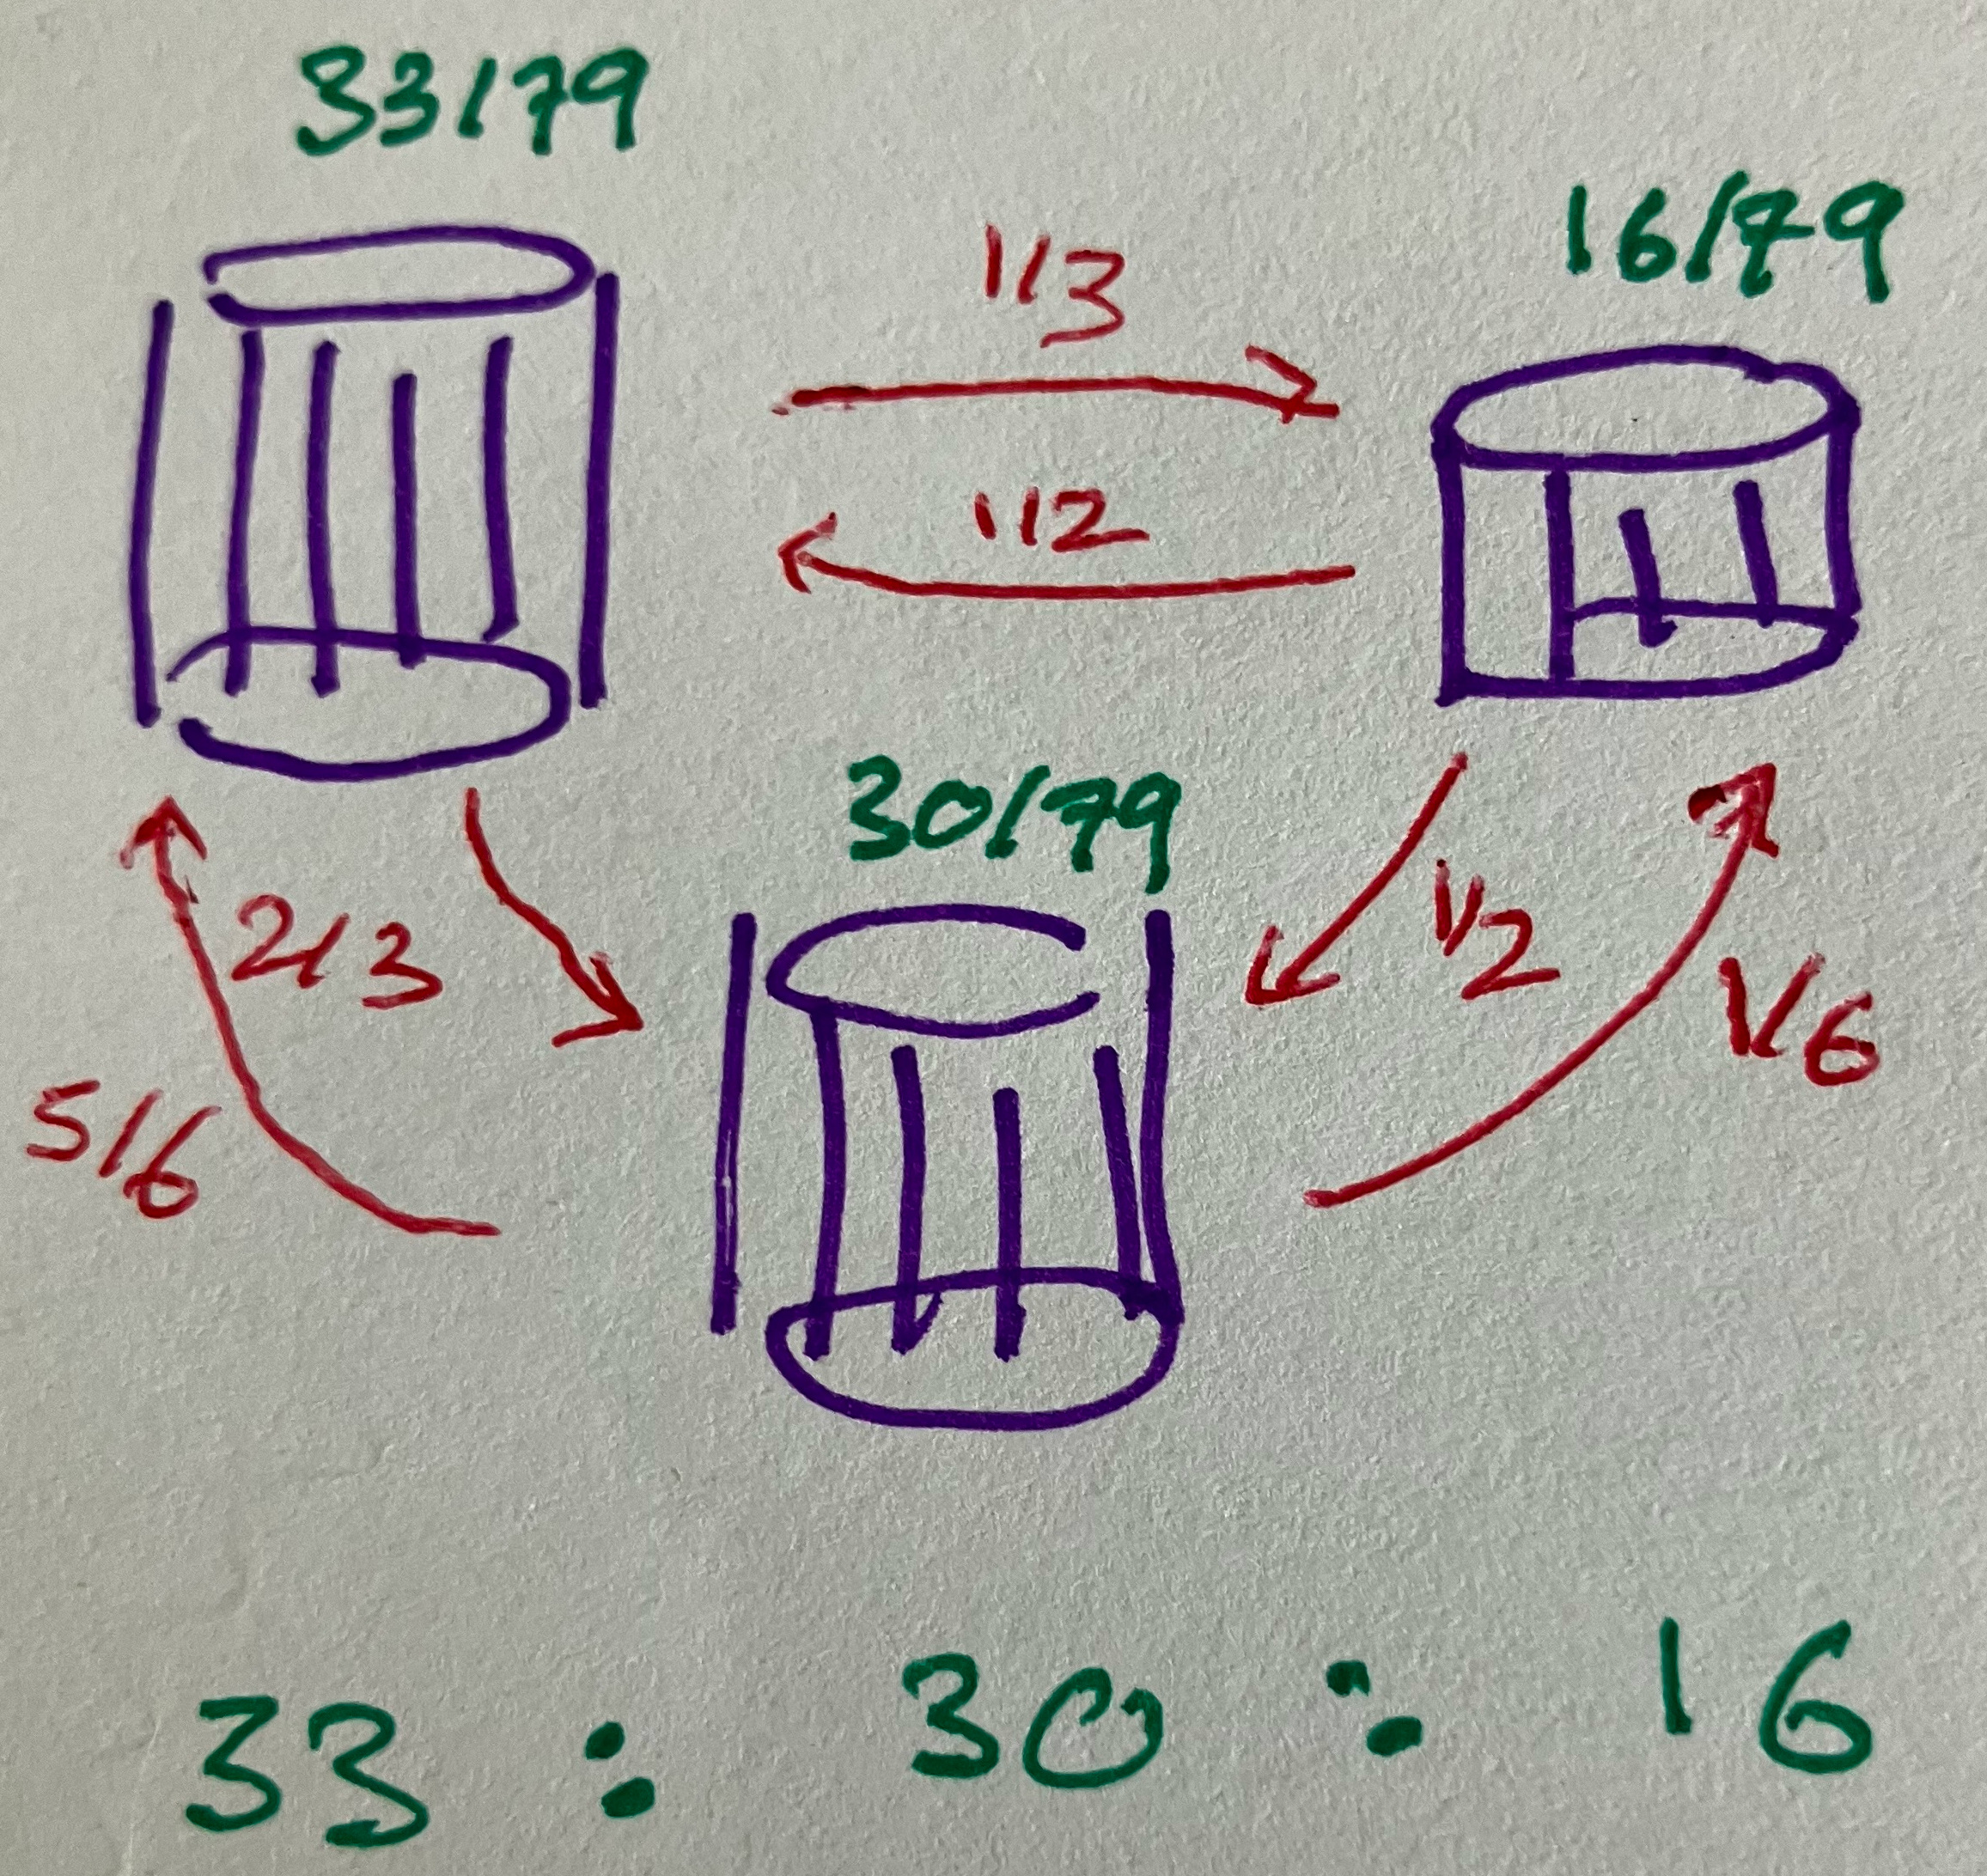 33/79
16/79
1/3
1/2
30/79
2/3
1/2
1/6
5/6
33 : 30 : 16